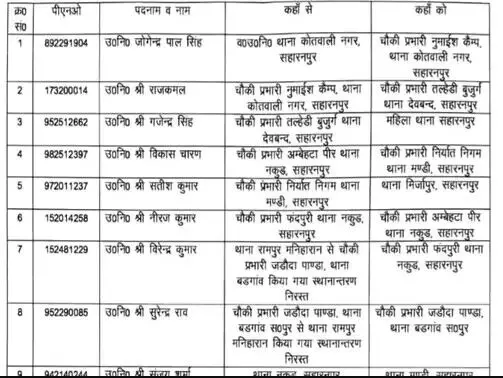 क्र0 पीएनओ पदनाम व नाम कहाँ से कहाँ को
सं0
1 892291904 उ0नि0 जोगेन्द्र पाल सिंह व0उ0नि0 थाना कोतवाली नगर, चौकी प्रभारी नुमाईश कैम्प,
सहारनपुर थाना कोतवाली नगर,
सहारनपुर
2 173200014 उ0नि0 श्री राजकमल चौकी प्रभारी नुमाईश कैम्प, थाना चौकी प्रभारी तल्हेडी बुजुर्ग
कोतवाली नगर, सहारनपुर थाना देवबन्द, सहारनपुर
3 952512662 उ0नि0 श्री गजेन्द्र सिंह चौकी प्रभारी तल्हेडी बुजुर्ग थाना महिला थाना सहारनपुर
देवबन्द, सहारनपुर
4 982512397 उ0नि0 श्री विकास चारण चौकी प्रभारी अम्बेहटा पीर थाना चौकी प्रभारी निर्यात निगम
नकुड, सहारनपुर थाना मण्डी, सहारनपुर
5 972011237 उ0नि0 श्री सतीश कुमार चौकी प्रभारी निर्यात निगम थाना थाना मिर्जापुर, सहारनपुर
मण्डी, सहारनपुर
6 152014258 उ0नि0 श्री नीरज कुमार चौकी प्रभारी फंदपुरी थाना नकुड, चौकी प्रभारी अम्बेहटा पीर
सहारनपुर थाना नकुड, सहारनपुर
7 152481229 उ0नि0 श्री विरेन्द्र कुमार थाना रामपुर मनिहारान से चौकी चौकी प्रभारी फंदपुरी थाना
प्रभारी जडौदा पाण्डा, थाना नकुड, सहारनपुर
बडगांव किया गया स्थानान्तरण
निरस्त
8 952290085 उ0नि0 श्री सुरेन्द्र राव चौकी प्रभारी जडौदा पाण्डा, थाना चौकी प्रभारी जडौदा पाण्डा,
बडगांव स0पुर से थाना रामपुर थाना बडगांव स0पुर
मनिहारान किया गया स्थानान्तरण
निरस्त
9 942140244 उ0नि0 श्री संजय शर्मा थाना नकुड, सहारनपुर थाना मण्डी, सहारनपुर